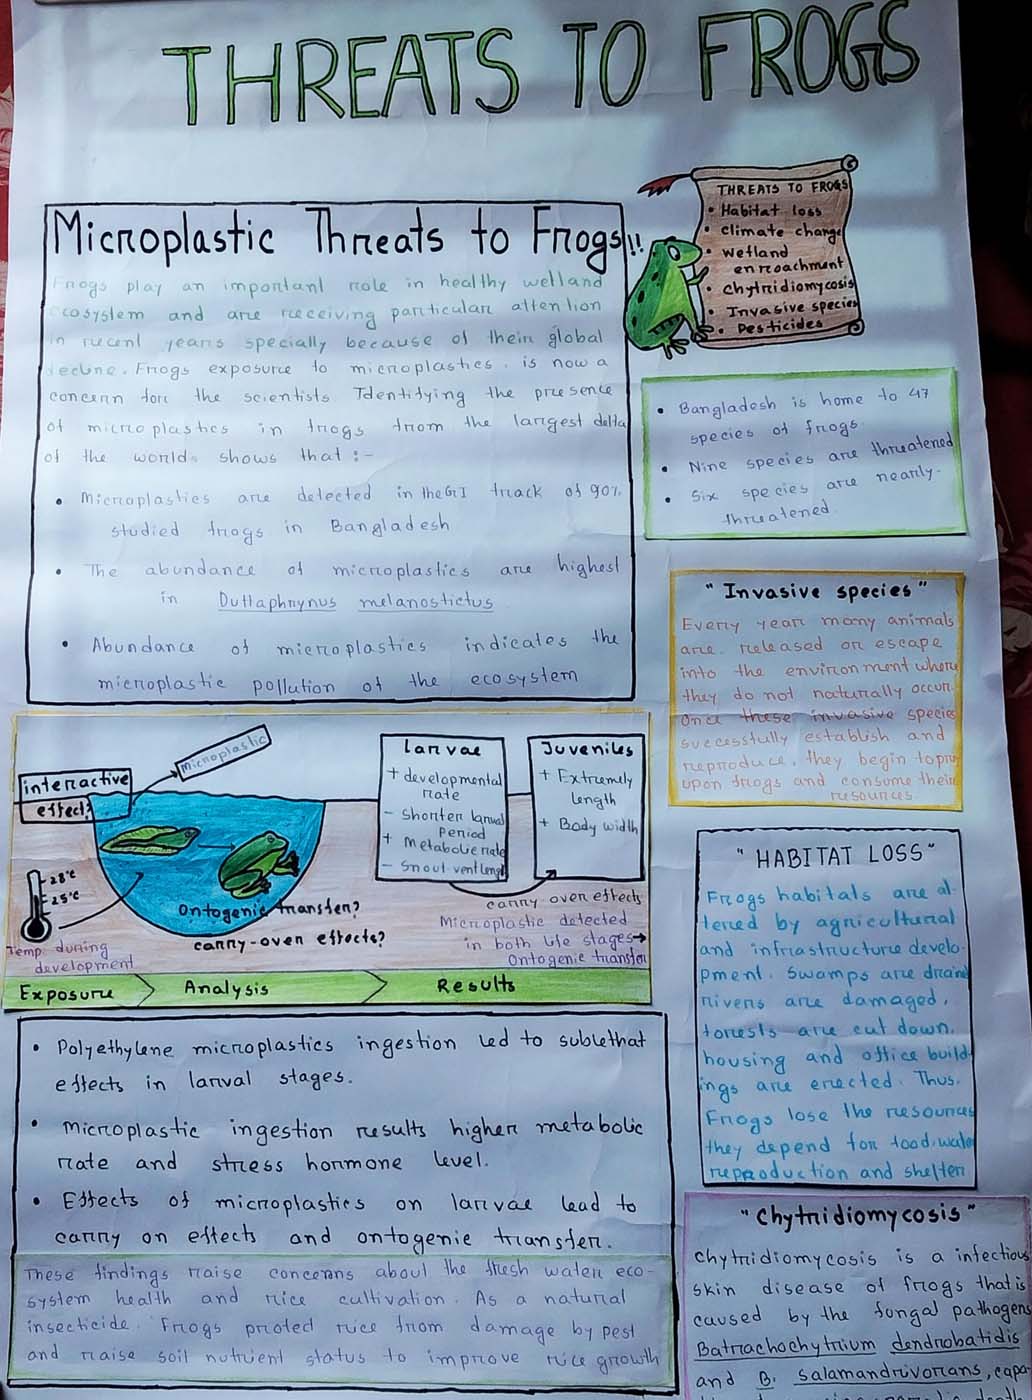 THREATS TO FROGS
Microplastic Threats to Frogs!!
Frogs play an important role in healthy wetland
ecosystem and are receiving particular attention
in recent years specially because of their global
decline. Frogs exposure to microplastics. is now a
concern for the scientists Identifying the presence
of microplastics in frogs from the largest delta
of the world shows that :-
• Microplastics are detected in the GI track of 90%
studied frogs in Bangladesh
• The abundance of microplastics are highest
in Duttaphrynus melanostictus
• Abundance of microplastics indicates the
microplastic pollution of the ecosystem
THREATS TO FROGS
• Habitat loss
• climate change
• wetland
enroachment
• chytridiomycosis
• Invasive species
• Pesticides
• Bangladesh is home to 47
species of frogs.
• Nine species are threatened
• Six species are nearly-
threatened
"Invasive species"
Every year many animals
are released or escape
into the environment where
they do not naturally occur.
Once these invasive species
successfully establish and
reproduce, they begin to prey
upon frogs and consume their
resources
interactive
effect?
Microplastic
28°C
25°C
Temp. during
development
Ontogenic transfer?
carry-over effects?
larvae
+ developmental
rate
- Shorter larval
period
+ Metabolic rate
- Snout vent length
Juveniles
+ Extremely
length
+ Body width
carry over effects
Microplastic detected
in both life stages→
Ontogenic transfer
Exposure
Analysis
Results
• Polyethylene microplastics ingestion led to sublethat
effects in larval stages.
• Microplastic ingestion results higher metabolic
rate and stress hormone level.
• Effects of microplastics on larvae lead to
carry on effects and ontogenic transfer.
These findings raise concerns about the fresh water eco-
system health and rice cultivation. As a natural
insecticide. Frogs proted rice from damage by pest
and raise soil nutrient status to improve rice growth
"HABITAT LOSS"
Frogs habitals are al-
tered by agricultural
and infrastructure develo-
pment. Swamps are drained
rivers are damaged,
forests are cut down,
housing and office build-
ings are erected. Thus.
Frogs lose the resources
they depend for food, water
reproduction and shelter
"Chytridiomycosis"
Chytridiomycosis is a infectious
skin disease of frogs that is
caused by the fongal pathogens
Batrachochytrium dendrobatidis
and B. salamandrivorans, capa-